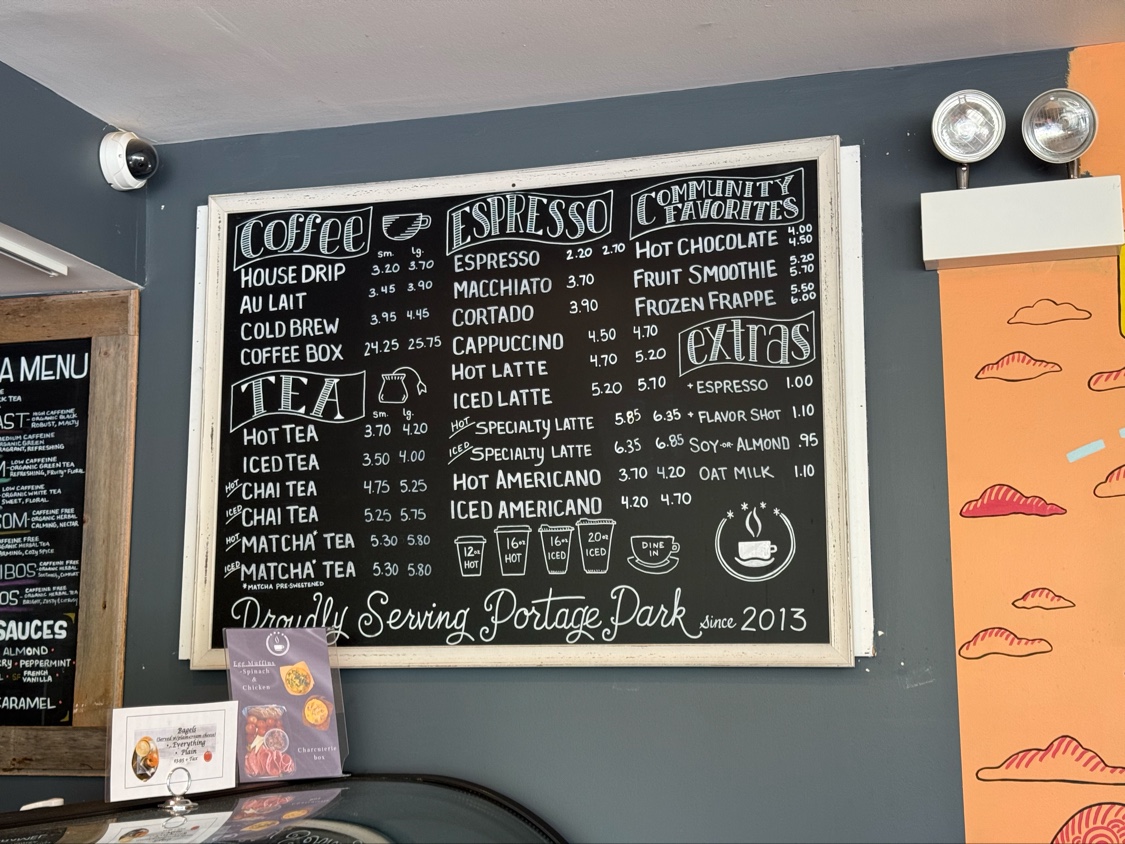 A MENU
CK TEA
AST- HIGH CAFFEINE
ORGANIC BLACK
ROBUST, MALTY
MEDIUM CAFFEINE
ORGANIC GREEN
REFRESHING
LOW CAFFEINE
ORGANIC GREEN TEA
REFRESHING, FRUITY
LOW CAFFEINE
ORGANIC WHITE TEA
SWEET, FLORAL
COM- CAFFEINE FREE
ORGANIC HERBAL
CALMING, NECTAR
CAFFEINE FREE
ORGANIC HERBAL TEA
COZY SPICE
IBOS CAFFEINE FREE
ORGANIC HERBAL
OS- CAFFEINE FREE
ORGANIC HERBAL TEA
SAUCES
ALMOND •
RY • PEPPERMINT
FRENCH
VANILLA
CARAMEL
Coffee
sm. lg.
HOUSE DRIP 3.20 3.70
AU LAIT 3.45 3.90
COLD BREW 3.95 4.45
COFFEE BOX 24.25 25.75
TEA
sm. lg.
HOT TEA 3.70 4.20
ICED TEA 3.50 4.00
HOT CHAI TEA 4.75 5.25
ICED CHAI TEA 5.25 5.75
HOT MATCHA* TEA 5.30 5.80
ICED MATCHA* TEA 5.30 5.80
*MATCHA PRE-SWEETENED
ESPRESSO
ESPRESSO 2.20 2.70
MACCHIATO 3.70
CORTADO 3.90
CAPPUCCINO 4.50 4.70
HOT LATTE 4.70 5.20
ICED LATTE 5.20 5.70
HOT SPECIALTY LATTE 5.85 6.35
ICED SPECIALTY LATTE 6.35 6.85
HOT AMERICANO 3.70 4.20
ICED AMERICANO 4.20 4.70
12oz HOT
16oz HOT
16oz ICED
20oz ICED
DINE IN
COMMUNITY
FAVORITES
HOT CHOCOLATE 4.00 4.50
FRUIT SMOOTHIE 5.20 5.70
FROZEN FRAPPE 5.50 6.00
extras
+ESPRESSO 1.00
+ FLAVOR SHOT 1.10
SOY -OR- ALMOND .95
OAT MILK 1.10
Proudly Serving Portage Park since 2013
Egg Muffins
-Spinach
&
Chicken
Charcuterie
box
Bagels
• Everything
• Plain
+ Tax